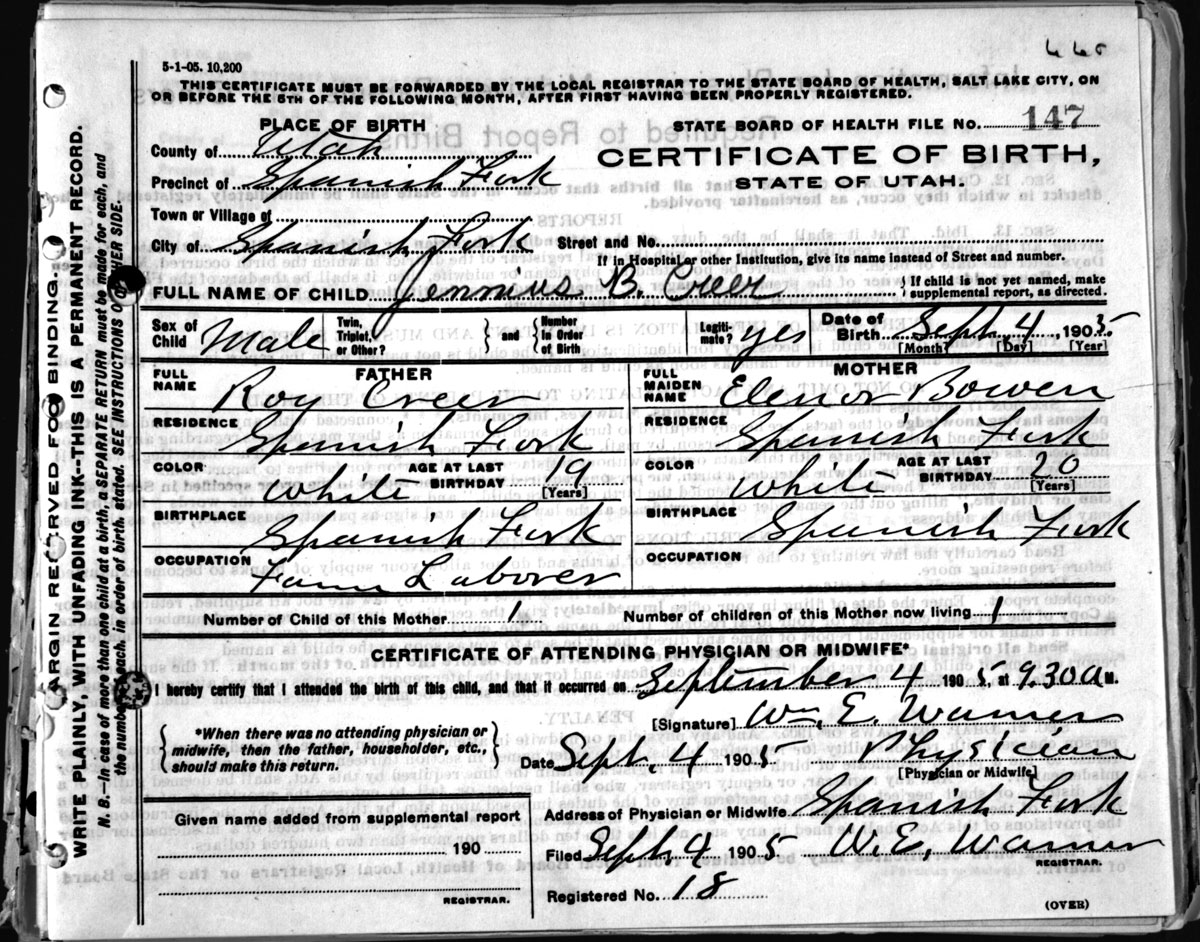 445
5-1-05. 10,200
THIS CERTIFICATE MUST BE FORWARDED BY THE LOCAL REGISTRAR TO THE STATE BOARD OF HEALTH, SALT LAKE CITY, ON
OR BEFORE THE 5TH OF THE FOLLOWING MONTH, AFTER FIRST HAVING BEEN PROPERLY REGISTERED.
PLACE OF BIRTH
STATE BOARD OF HEALTH FILE NO. 147
County of Utah
CERTIFICATE OF BIRTH,
Precinct of Spanish Fork
STATE OF UTAH.
Town or Village of
City of Spanish Fork Street and No.
If in Hospital or other Institution, give its name instead of Street and number.
FULL NAME OF CHILD Jennius B. Creer { If child is not yet named, make
supplemental report, as directed.
Sex of Child Male Twin, Triplet, or Other? } and { Number in Order of Birth Legiti-mate? yes Date of Birth Sept. 4, 1905
[Month] [Day] [Year]
FATHER
FULL NAME Roy Creer
RESIDENCE Spanish Fork
COLOR White AGE AT LAST BIRTHDAY 19
[Years]
BIRTHPLACE Spanish Fork
OCCUPATION Farm Laborer
MOTHER
FULL MAIDEN NAME Elenor Bowen
RESIDENCE Spanish Fork
COLOR White AGE AT LAST BIRTHDAY 20
[Years]
BIRTHPLACE Spanish Fork
OCCUPATION
Number of Child of this Mother 1 Number of children of this Mother now living 1
CERTIFICATE OF ATTENDING PHYSICIAN OR MIDWIFE*
I hereby certify that I attended the birth of this child, and that it occurred on September 4 1905, at 9.30 A M.
[Signature] Wm. E. Warner
{ *When there was no attending physician or
midwife, then the father, householder, etc.,
should make this return. }
Date Sept. 4 1905 Physician
[Physician or Midwife]
Given name added from supplemental report
190
REGISTRAR.
Address of Physician or Midwife Spanish Fork
Filed Sept. 4 1905 W. E. Warner
REGISTRAR.
Registered No. 18
(OVER)
MARGIN RESERVED FOR BINDING.
WRITE PLAINLY, WITH UNFADING INK--THIS IS A PERMANENT RECORD.
N. B.--In case of more than one child at a birth, a SEPARATE RETURN must be made for each, and
the number of each, in order of birth, stated. SEE INSTRUCTIONS ON OTHER SIDE.